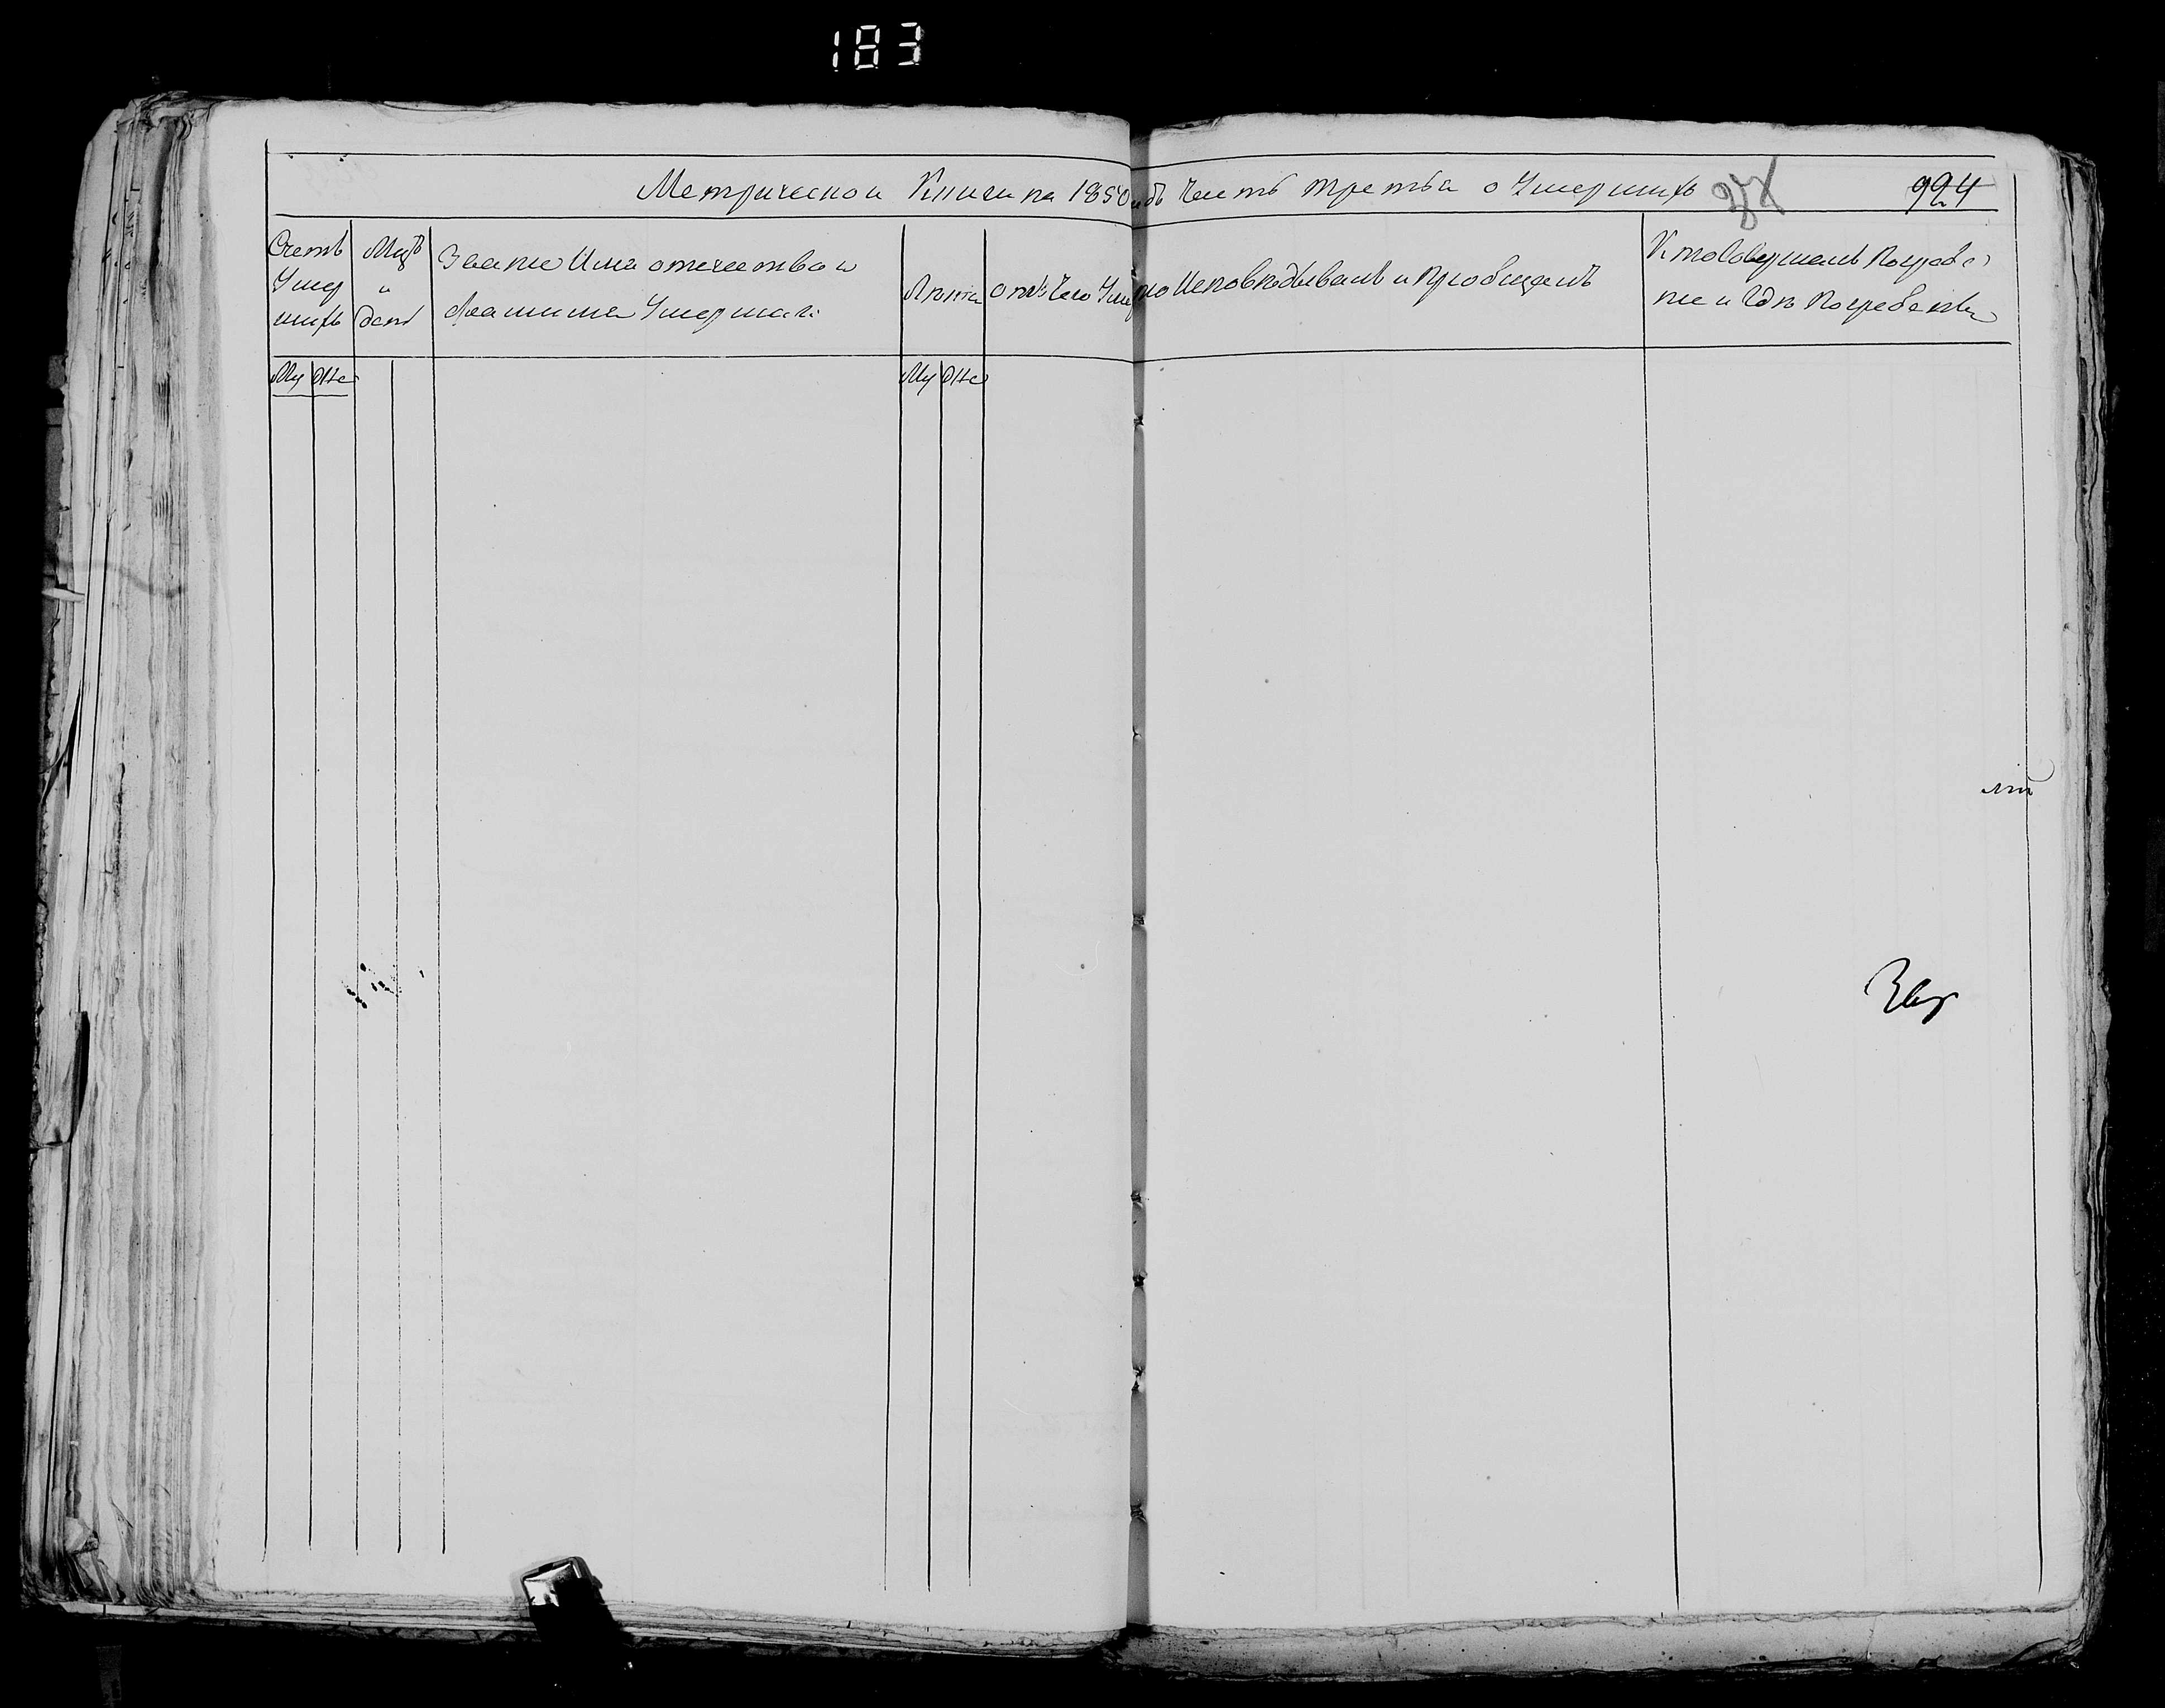 183
Метрической Книги на 1850 годъ Часть третья о Умершихъ
924
Счетъ Умер шихъ
Мцъ и день
Званіе Имя отечество и фамилия Умершаго
Лѣта
отъ Чего Умеръ
кто Исповѣдывалъ и приобщалъ
Кто Совершалъ Погребе: ние и Гдѣ Погребены
Му Же
Му Же